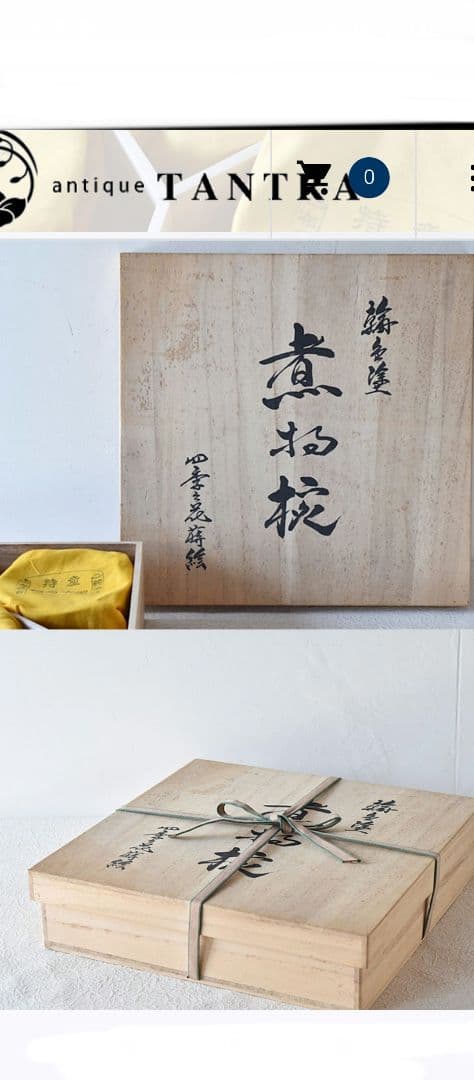 antique TANTRA
0
輪島塗
煮物椀
四季之花蒔絵
輪島塗
煮物椀
四季之花蒔絵